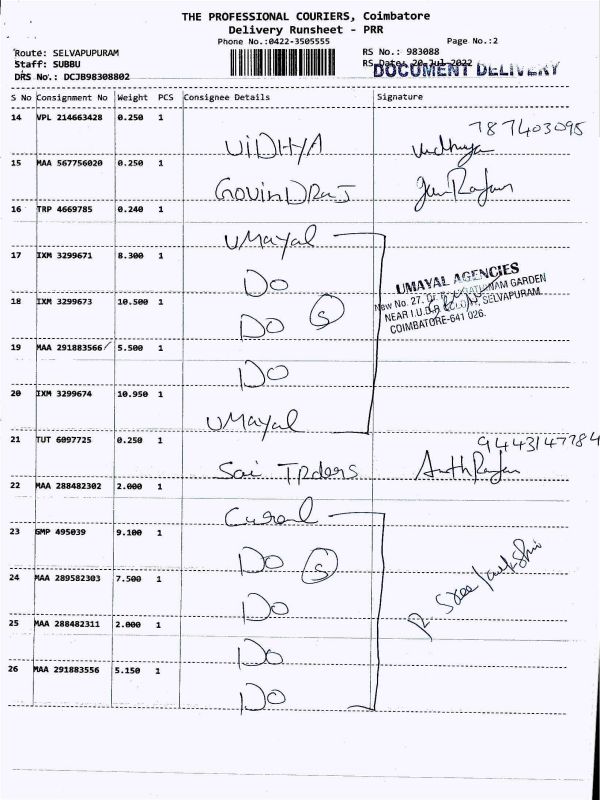 THE PROFESSIONAL COURIERS, Coimbatore
Delivery Runsheet - PRR
Phone No.:0422-3505555
Page No.:2
Route: SELVAPUPURAM
RS No.: 983088
Staff: SUBBU
RS Date: 20-Jul-2022
DOCUMENT DELIVERY
DRS No.: DCJB98308802
S No Consignment No Weight PCS Consignee Details Signature
14 VPL 214663428 0.250 1
787403095
ViDHYA Vidhya
15 MAA 567756020 0.250 1
GovinDRaJ
16 TRP 4669785 0.240 1
UMayal
17 IXM 3299671 8.300 1
DO
UMAYAL AGENCIES
New No. 27, GARDEN
NEAR I.U.D.P. COLONY, SELVAPURAM,
COIMBATORE-641 026.
18 IXM 3299673 10.500 1
DO 5
19 MAA 291883566 5.500 1
DO
20 IXM 3299674 10.950 1
UMayal
21 TUT 6097725 0.250 1
9443147784
Sai TRders
22 MAA 288482302 2.000 1
23 GMP 495039 9.100 1
DO 5
24 MAA 289582303 7.500 1
DO
25 MAA 288482311 2.000 1
DO
26 MAA 291883556 5.150 1
DO